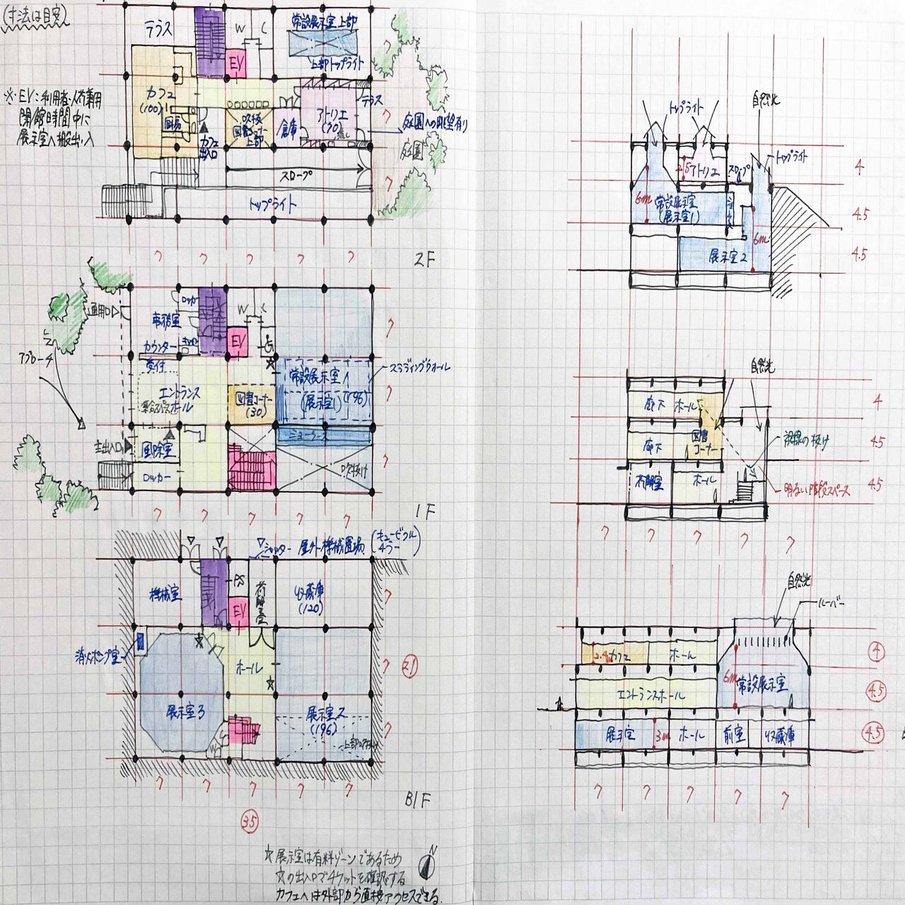 (寸法は目安)
※・EV:利用者・人荷兼用
開館時間中に
展示室へ搬出入
テラス
W C
EV
常設展示室上部
上部トップライト
カフェ
(100)
厨房
カフェ
出入口
吹抜
図書コーナー
上部
倉庫
アトリエ
(70)
テラス
庭園への眺望有り
庭園
スロープ
トップライト
7 7 7 7 7
2F
アプローチ
通用口
事務室
ロッカー
カウンター
受付
W C
EV
エントランス
ホール
図書コーナー
(30)
常設展示室1
(展示室1)(196)
スライディングウォール
主出入口
風除室
ロッカー
吹抜け
7 7 7 7 7
1F
シャッター
屋外機械置場(キュービクル
機械室
PS
EV
荷解室
収蔵庫
(120)
消火ポンプ室
ホール
展示室3
展示室2
(196)
7 7 7 7 7
21
B1F
35
☆展示室は有料ゾーンであるため
☆の出入口でチケットを確認する
カフェへは外部から直接アクセスできる。
N
トップライト
自然光
トップライト
アトリエ
スロープ
6m
常設展示室
(展示室1)
6m
展示室2
4
4.5
4.5
自然光
廊下
ホール
廊下
図書
コーナー
視線の抜け
ホール
明るい階段スペース
4
4.5
4.5
7 7 7
自然光
ルーバー
カフェ
ホール
6m
常設展示室
エントランスホール
展示室
3m
ホール
前室
収蔵庫
4
4.5
4.5
7 7 7 7 7